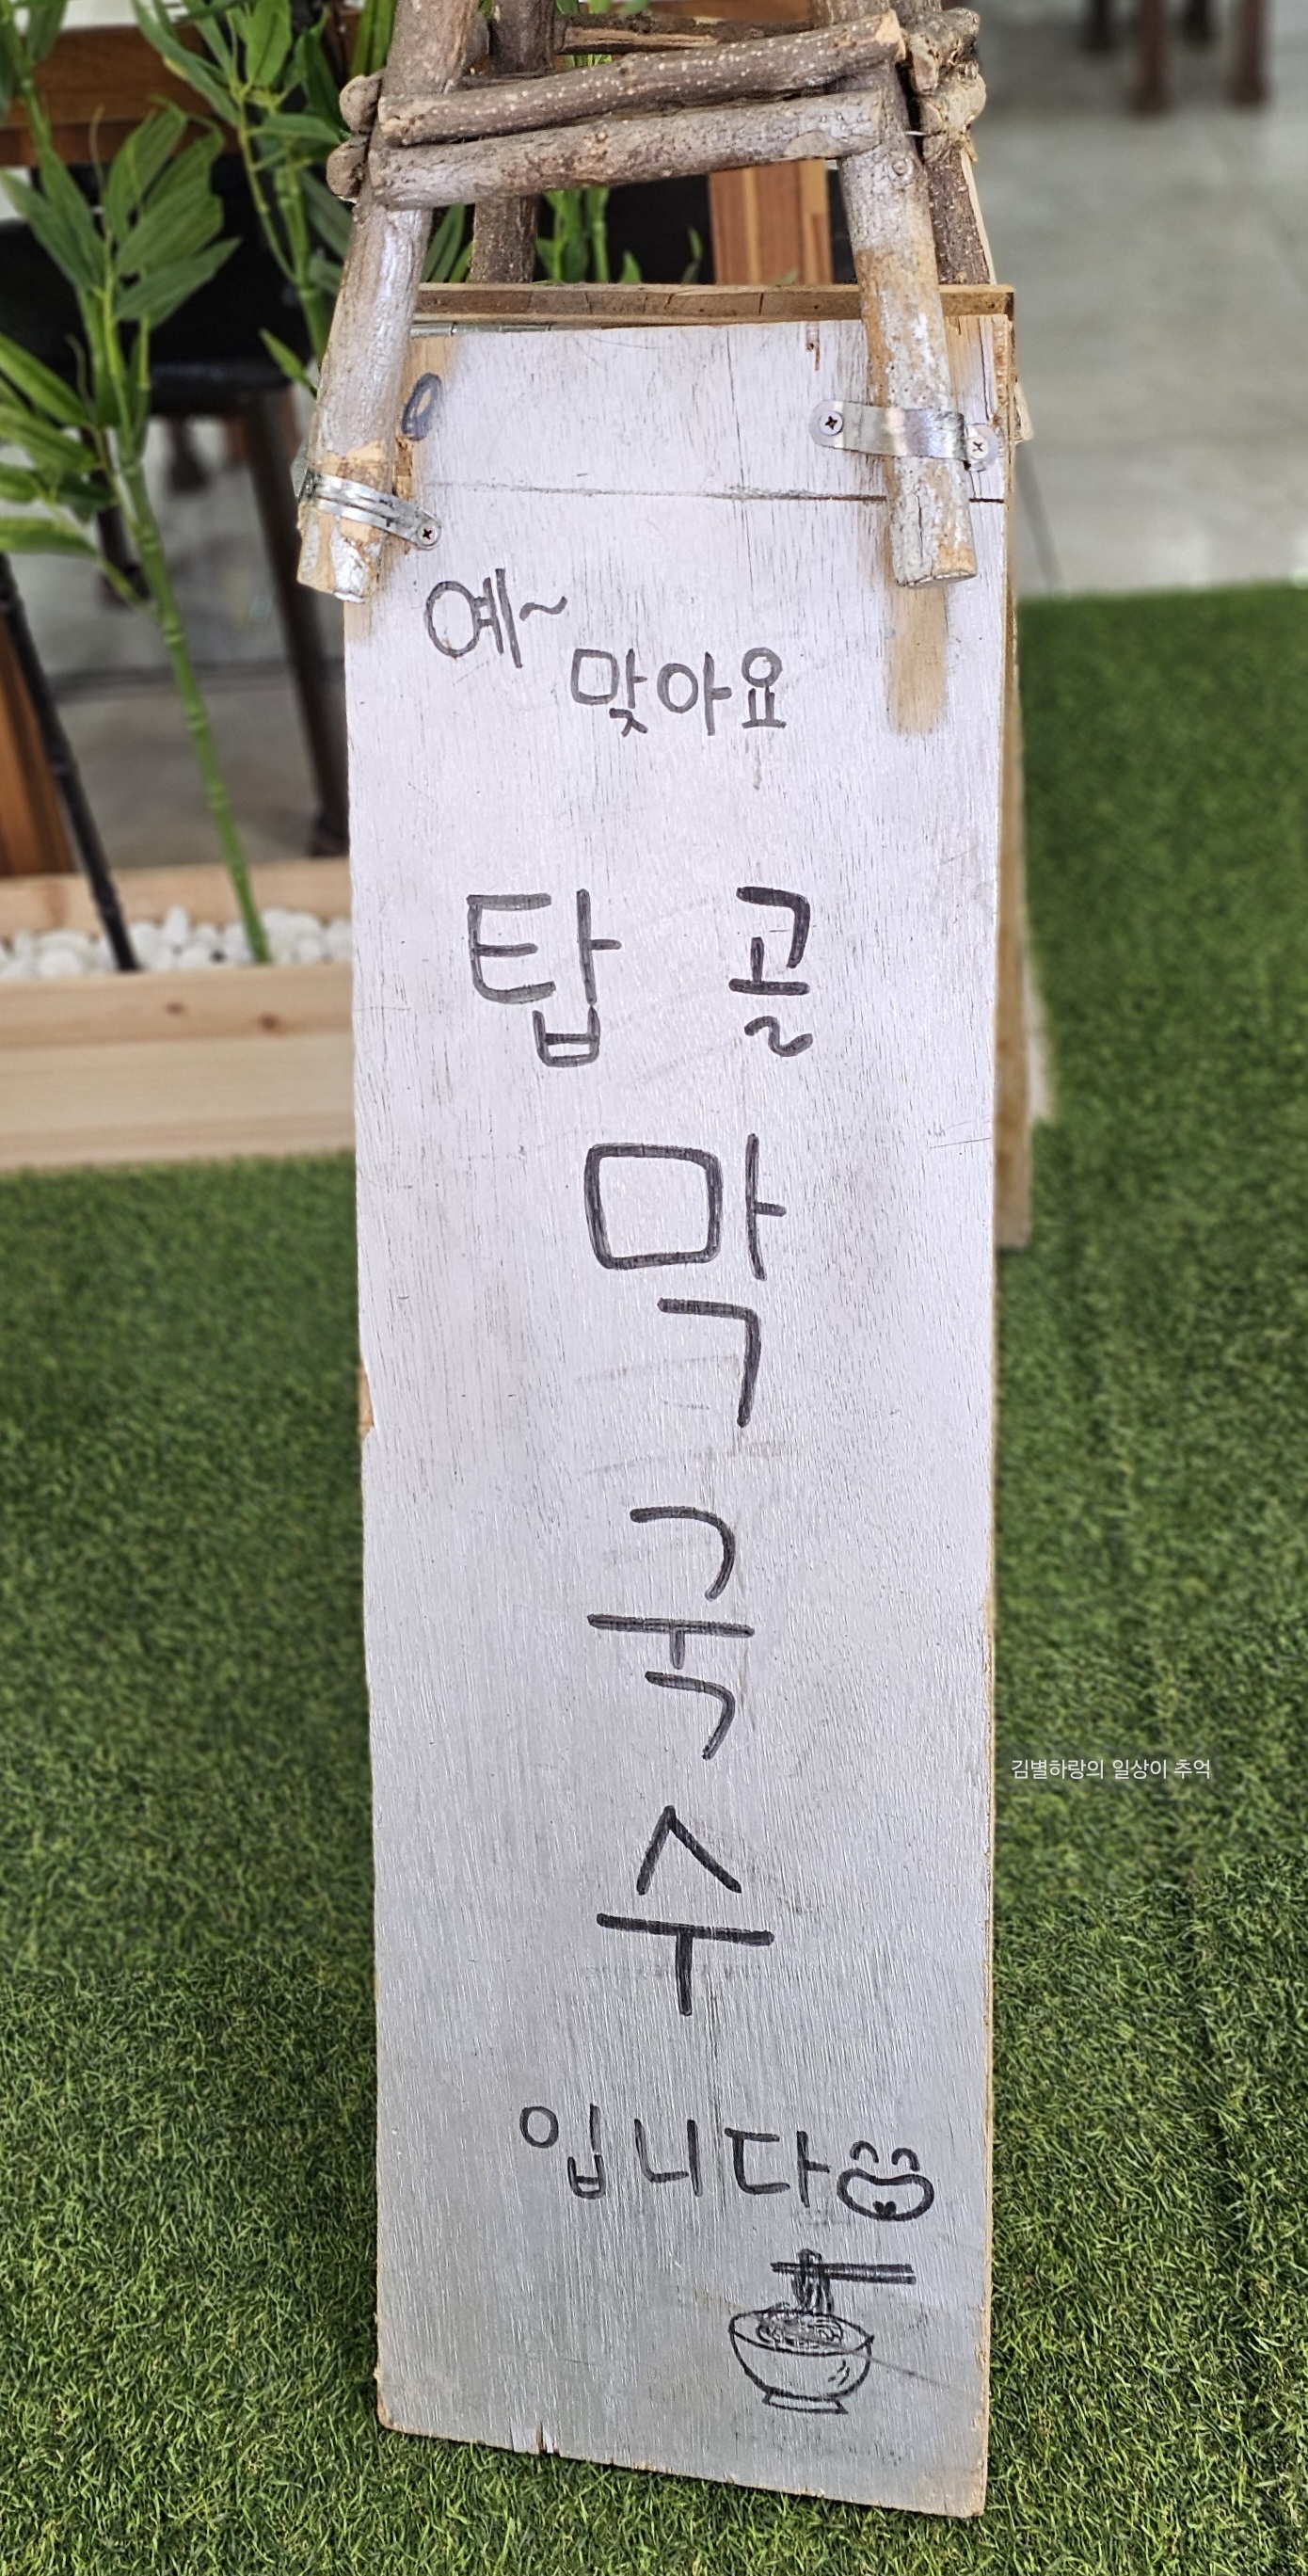 예~
맞아요
탑 골
막
국
수
입니다
김별하랑의 일상이 추억